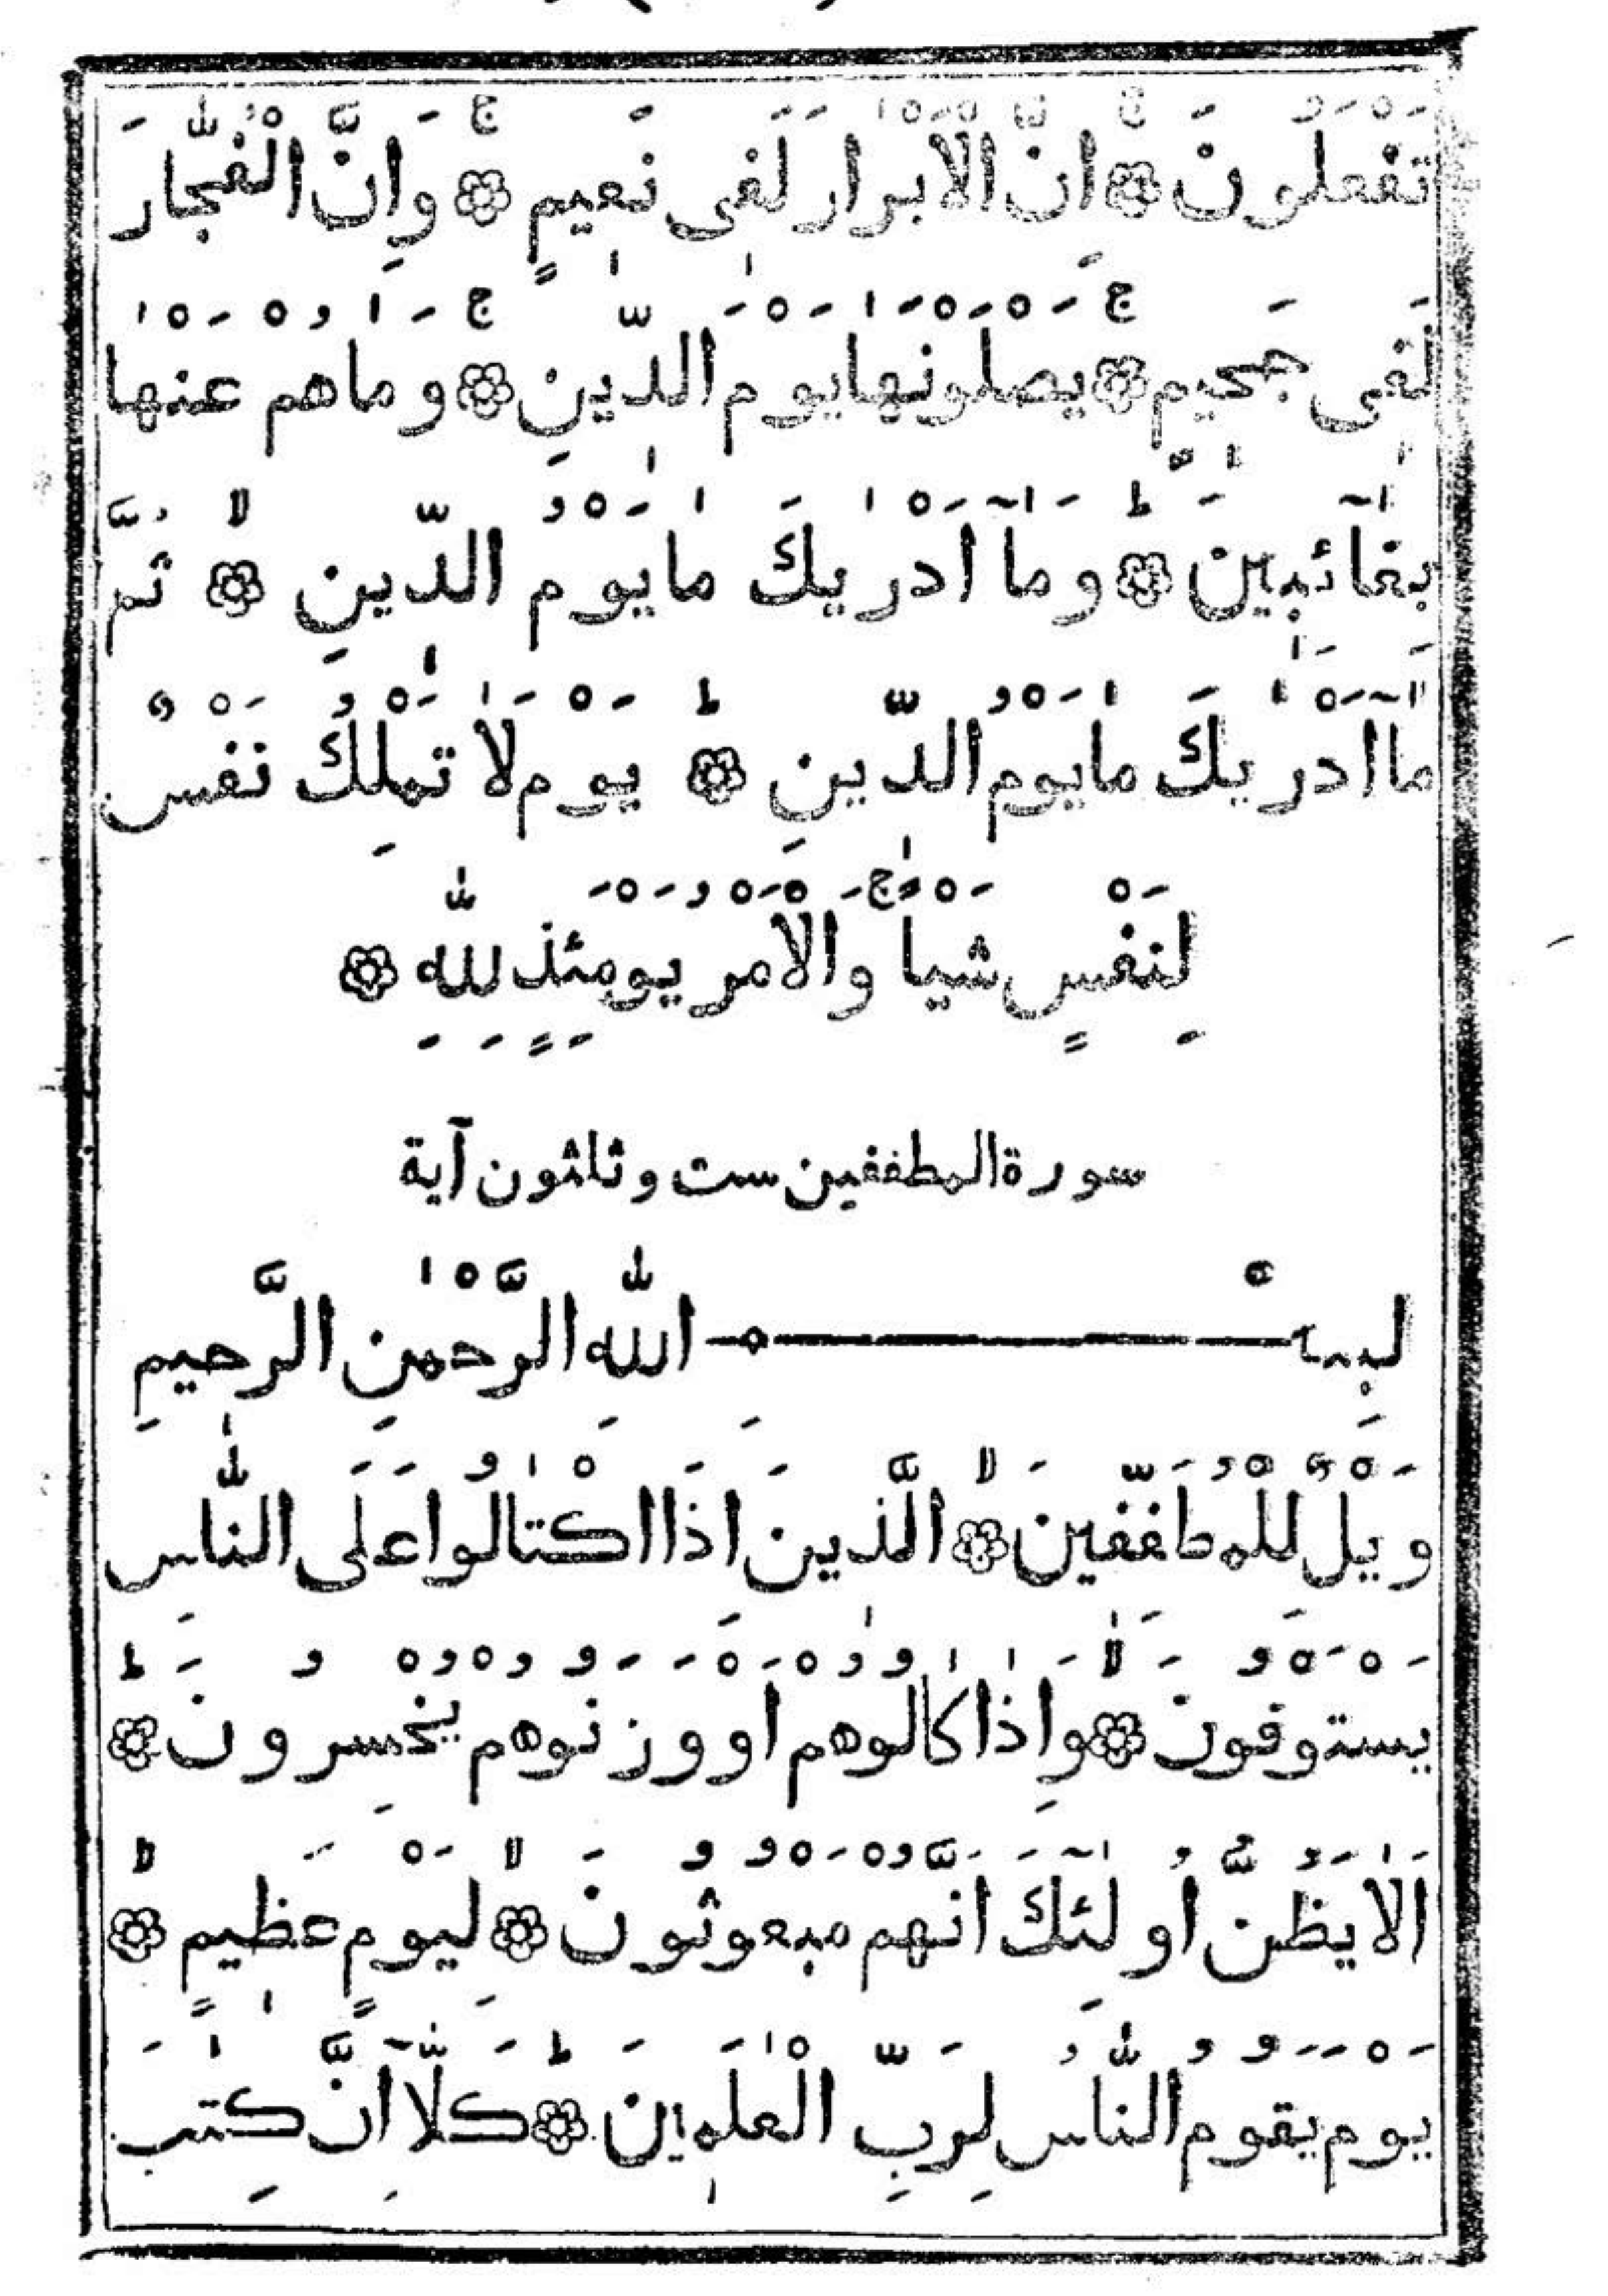 تَفْعَلُونَ ۞ اِنَّ الْاَبْرَارَ لَفِى نَعِيمٍ ۞ وَاِنَّ الْفُجَّارَ
لَفِى جَحِيمٍ ۞ يَصْلَوْنَهَا يَوْمَ الدِّينِ ۞ وَمَا هُمْ عَنْهَا
بِغَآئِبِينَ ۞ وَمَآ اَدْرٰيكَ مَا يَوْمُ الدِّينِ ۞ ثُمَّ
مَآ اَدْرٰيكَ مَا يَوْمُ الدِّينِ ۞ يَوْمَ لَا تَمْلِكُ نَفْسٌ
لِنَفْسٍ شَيْـًٔا وَالْاَمْرُ يَوْمَئِذٍ لِلّٰهِ ۞
سورة المطففين ست و ثلثون آية
بِسْمِ اللّٰهِ الرَّحْمٰنِ الرَّحِيمِ
وَيْلٌ لِلْمُطَفِّفِينَ ۞ الَّذِينَ اِذَا اكْتَالُوا عَلَى النَّاسِ
يَسْتَوْفُونَ ۞ وَاِذَا كَالُوهُمْ اَوْ وَزَنُوهُمْ يُخْسِرُونَ ۞
اَلَا يَظُنُّ اُولَٰٓئِكَ اَنَّهُمْ مَبْعُوثُونَ ۞ لِيَوْمٍ عَظِيمٍ ۞
يَوْمَ يَقُومُ النَّاسُ لِرَبِّ الْعٰلَمِينَ ۞ كَلَّآ اِنَّ كِتٰبَ